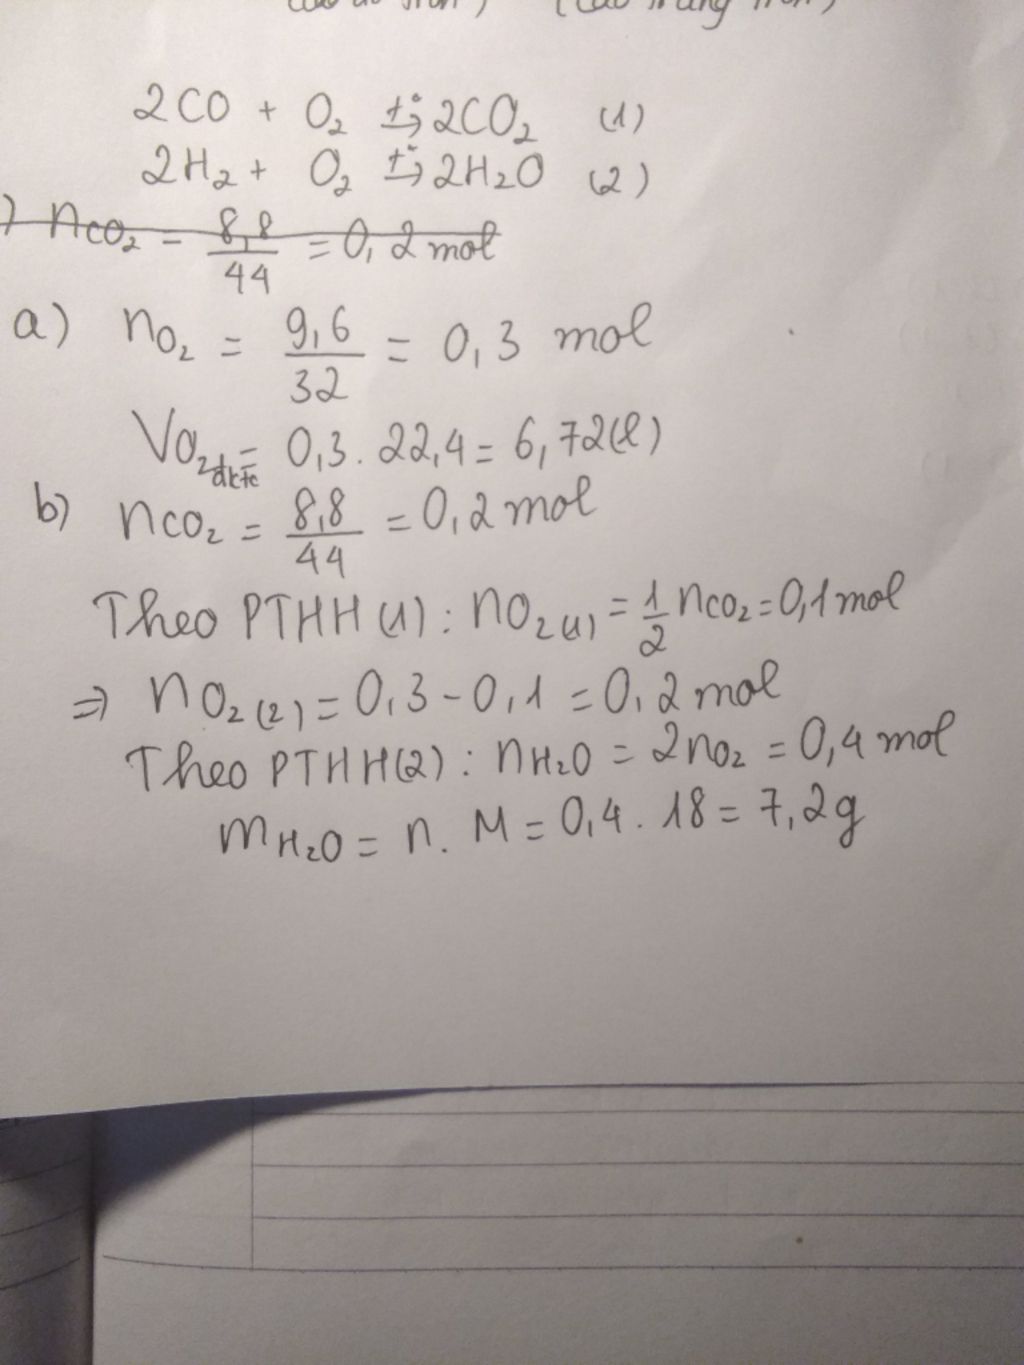 2CO + O₂ t°→ 2CO₂ (1)
2H₂ + O₂ t°→ 2H₂O (2)
) nCO₂ = 8,8/44 = 0,2 mol
a) nO₂ = 9,6/32 = 0,3 mol
VO₂đktc = 0,3 . 22,4 = 6,72(l)
b) nCO₂ = 8,8/44 = 0,2 mol
Theo PTHH (1) : nO₂(1) = 1/2 nCO₂ = 0,1 mol
⇒ nO₂(2) = 0,3 - 0,1 = 0,2 mol
Theo PTHH(2) : nH₂O = 2nO₂ = 0,4 mol
mH₂O = n. M = 0,4 . 18 = 7,2g